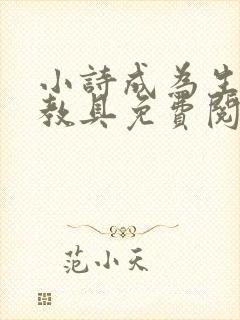 小詩成為生
教具免費閱
范小天